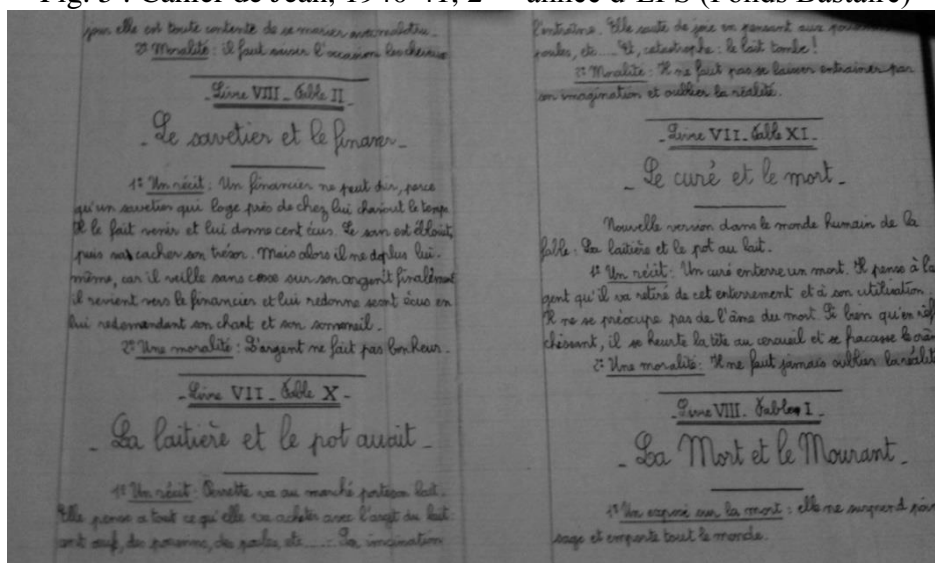 Fig. 3 : Cahier de Jean, 1940-41, 2ème année d'EPS (Fonds Bastaire)
jour elle est toute contente de se marier
2º Moralité : il faut saisir l'occasion les cheveux
Livre VIII _ Fable II _
_ Le savetier et le finan
1º Un récit : Un financier ne peut dormir, parce
qu'un savetier qui loge près de chez lui chantout le temps
Il le fait venir et lui donne cent écus. Le san est éblouit,
puis va cacher son trésor. Mais alors il ne doplus lui-
même, car il veille sans cesse sur son argent finalement
il revient vers le financier et lui redonne cent écus en
lui redemandant son chant et son sommeil.
2º Une moralité : L'argent ne fait pas bonheur.
_ Livre VII _ Fable X _
_ La laitière et le pot au lait _
1º Un récit : Perrette va au marché porter son lait.
Elle pense a tout ce qu'elle va acheter avec l'argt du lait
cent œuf, des des poules, etc ..... Son
l'entraîne. Elle saute de joie en pensant aux
poules, etc .... Et, catastrophe : le lait tombe !
2º Moralité : Il ne faut pas se laisser entraîner par
son imagination et oublier la réalité.
_ Livre VII. Fable XI. _
_ Le curé et le mort _
Nouvelle version dans le monde humain de la
fable : La laitière et le pot au lait.
1º Un récit : Un curé enterre un mort. Il pense à l'a
gent qu'il va retiré de cet enterrement et à son utilisation.
Il ne se préocupe pas de l'âme du mort. Si bien qu'en réf
chissant, il se heurte la tête au cerceuil et se fracasse le crân
2º Une moralité : Il ne faut jamais oublier la réalité
_ Livre VIII. Fable I _
_ La Mort et le Mourant _
1º Un exposé sur la mort : elle ne surprend
sage et emporte tout le monde.